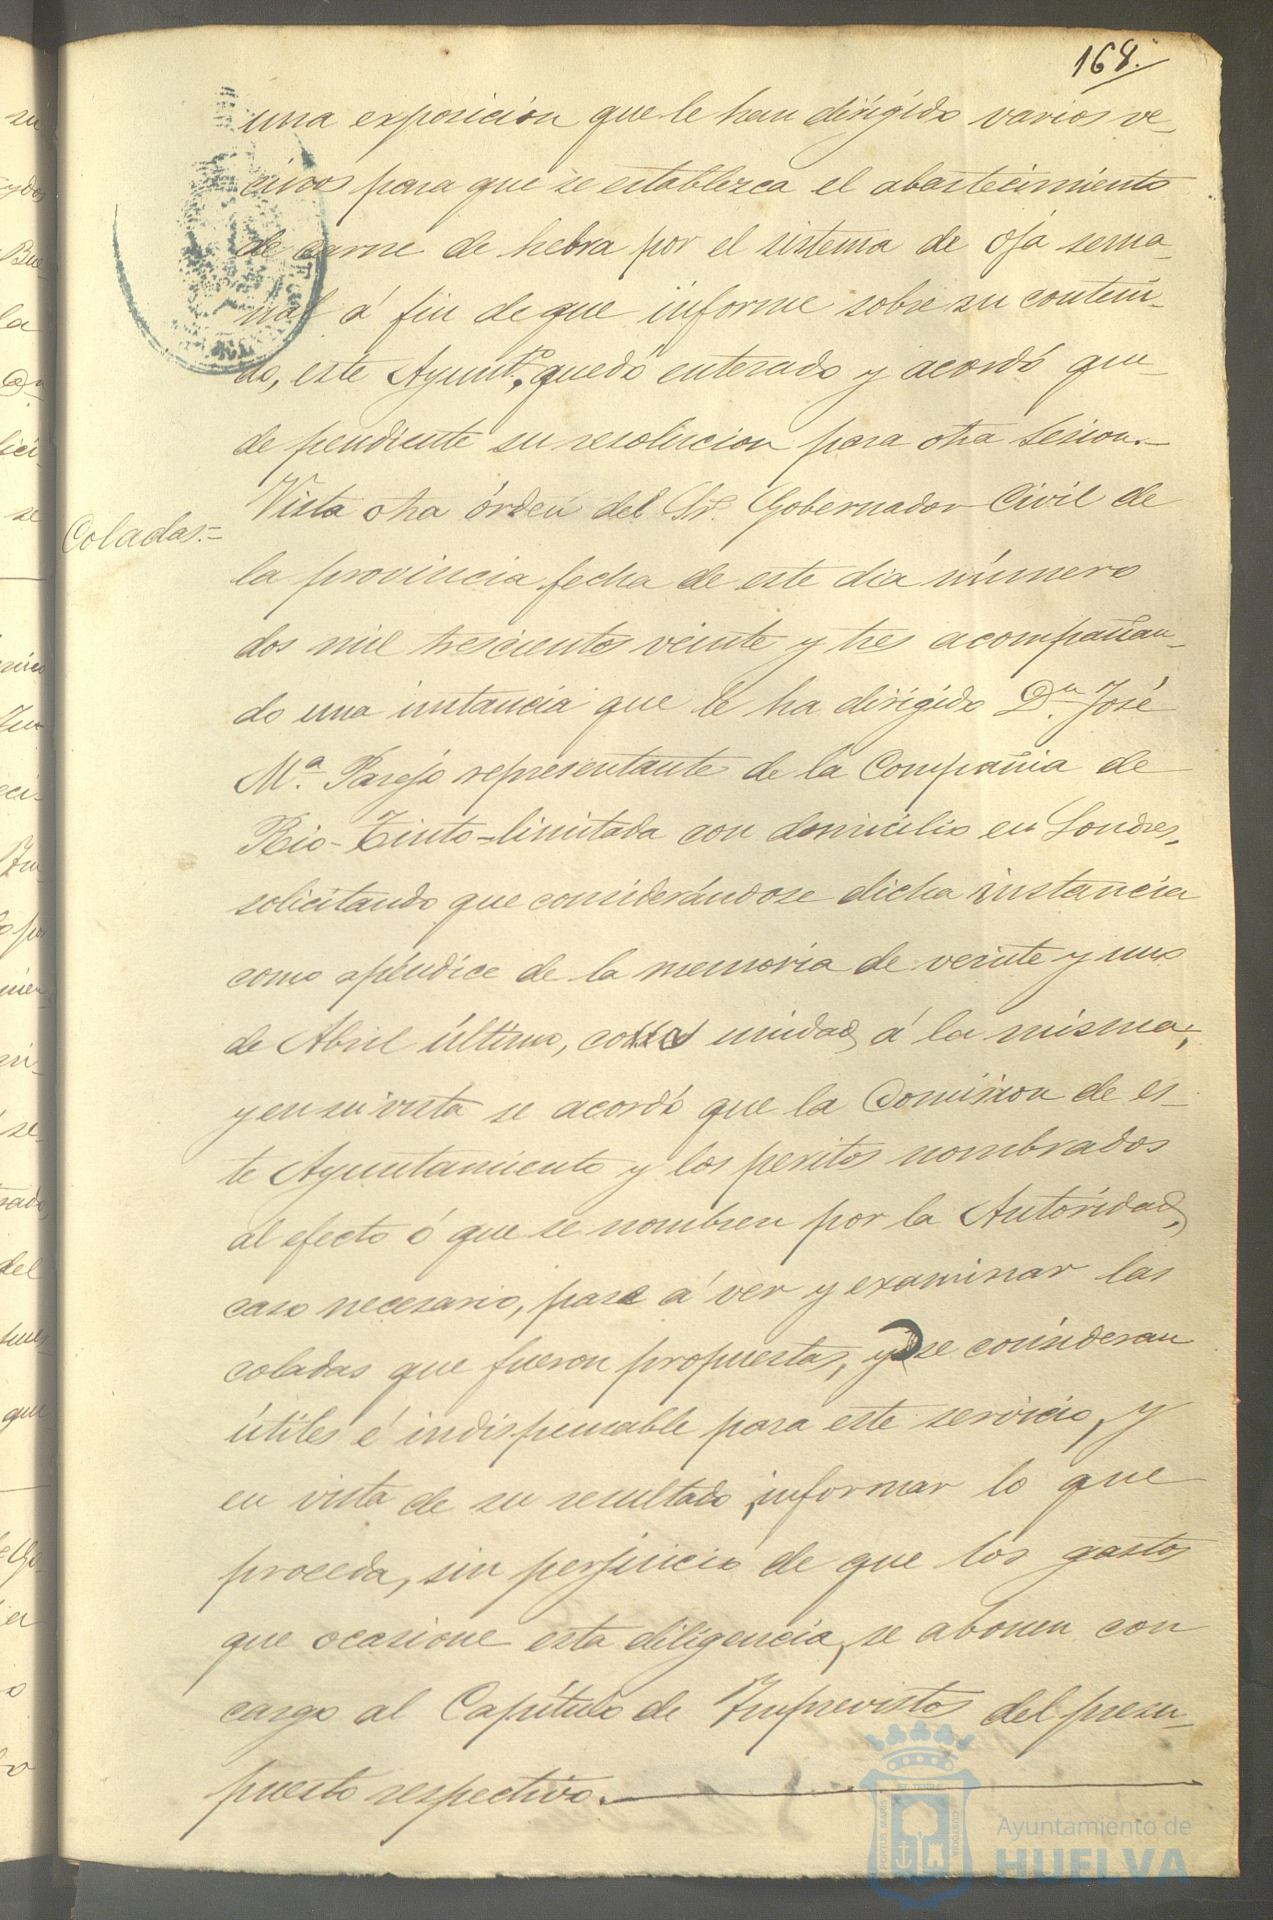 168.
una exposición que le han dirigido varios ve-
cinos para que se establezca el abastecimiento
de carne de hebra por el sistema de oja sema-
nal á fin de que informe sobre su conteni-
do, este Ayunt.º quedó enterado y acordó que-
de pendiente su resolucion para otra sesion.-
Coladas.=
Vista otra órden del Sr. Gobernador Civil de
la provincia fecha de este dia número
dos mil trescientos veinte y tres acompañan-
do una instancia que le ha dirigido D.n José
M.a Parejo representante de la Compañia de
Rio-Tinto-limitada con domicilio en Londres,
solicitando que considerándose dicha instancia
como apéndice de la memoria de veinte y uno
de Abril último, unidad á la misma;
y en su vista se acordó que la Comision de es-
te Ayuntamiento y los peritos nombrados
al efecto ó que se nombren por la Autoridad,
caso necesario, pase á ver y examinar las
coladas que fueron propuestas, y se consideran
útiles é indispensable para este servicio, y
en vista de su resultado, informar lo que
proceda, sin perjuicio de que los gastos
que ocasione esta diligencia, se abonen con
cargo al Capítulo de Imprevistos del presu-
puesto respectivo.
Ayuntamiento de
HUELVA